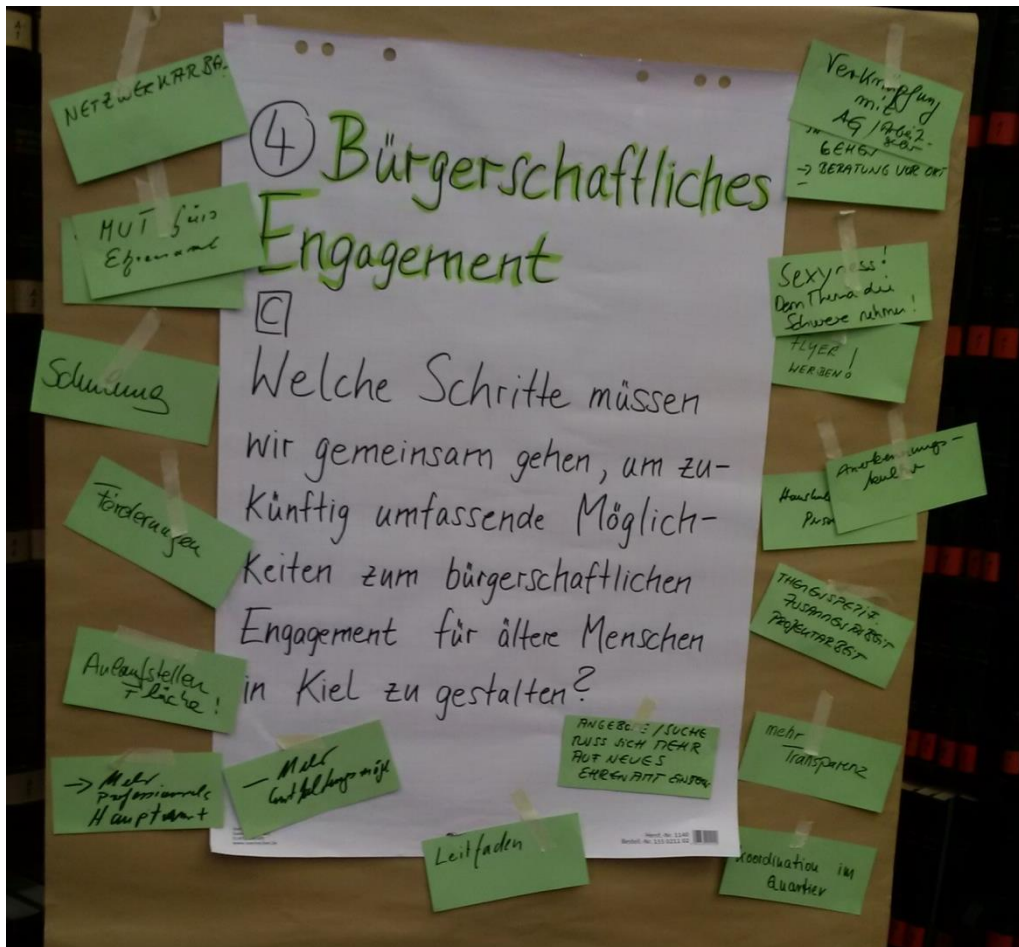 ④ Bürgerschaftliches
Engagement
C
Welche Schritte müssen
wir gemeinsam gehen, um zu-
künftig umfassende Möglich-
keiten zum bürgerschaftlichen
Engagement für ältere Menschen
in Kiel zu gestalten?
NETZWERKARBA.
MUT fürs
Ehrenamt
Schulung
Förderungen
Anlaufstellen
Fläche!
→ Mehr
Professionels
Hauptamt
– Mehr
Leitfaden
Verknüpfung
mit
AG / Arbeit
GEHEN
→ BERATUNG VOR ORT
Sexyness!
Dem Thema die
Schwere nehmen!
FLYER
WERBEN!
Anerkennungs-
kultur
Haushal
Perso
THEMENSPEZIF.
ZUSAMMENARBEIT
PROJEKTARBEIT
ANGEBOTE / SUCHE
MUSS SICH MEHR
AUF NEUES
EHRENAMT
mehr
Transparenz
Koordination im
Quartier